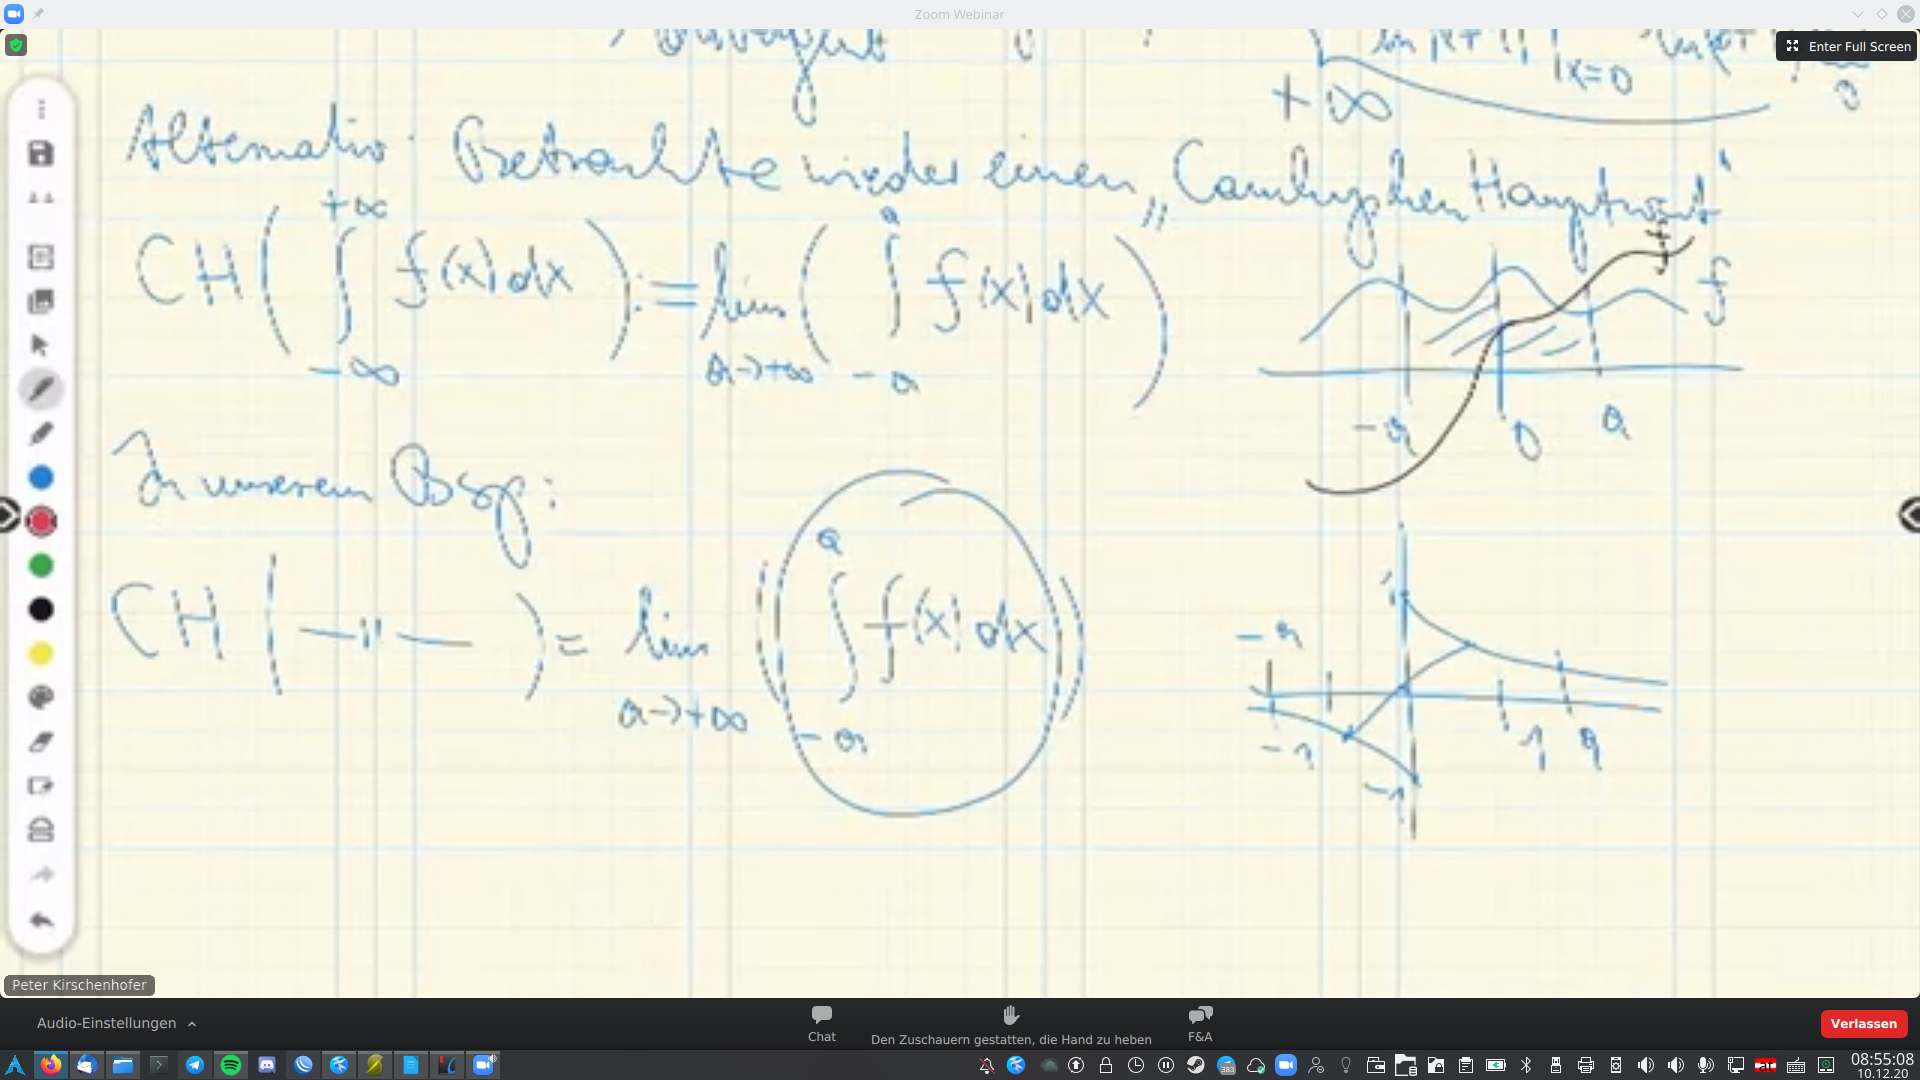 Zoom Webinar
Enter Full Screen
divergent
x=0
+∞
0
Alternativ: Betrachte wieder einen „Cauchyschen Hauptwert"
CH(∫_{-∞}^{+∞} f(x)dx) := lim_{a→+∞} (∫_{-a}^{a} f(x)dx)
f
-a 0 a
In unserem Bsp:
CH( —"— ) = lim_{a→+∞} (∫_{-a}^{a} f(x)dx)
1
-a
-1 1 a
-1
Peter Kirschenhofer
Audio-Einstellungen
Chat
Den Zuschauern gestatten, die Hand zu heben
F&A
Verlassen
383
08:55:08
10.12.20